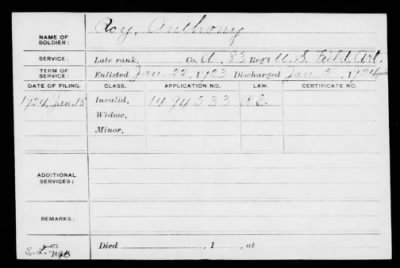 NAME OF SOLDIER: Roy, Anthony
SERVICE: Late rank, Co. A, 83 Reg't U.S. Field Art.
TERM OF SERVICE: Enlisted Jan. 22, 1923 Discharged Jan. 2, 1924
DATE OF FILING. CLASS. APPLICATION NO. LAW. CERTIFICATE NO.
1924, Jan. 15 Invalid, 1494533
Widow,
Minor,
ADDITIONAL SERVICES:
REMARKS:
Died , 1 , at